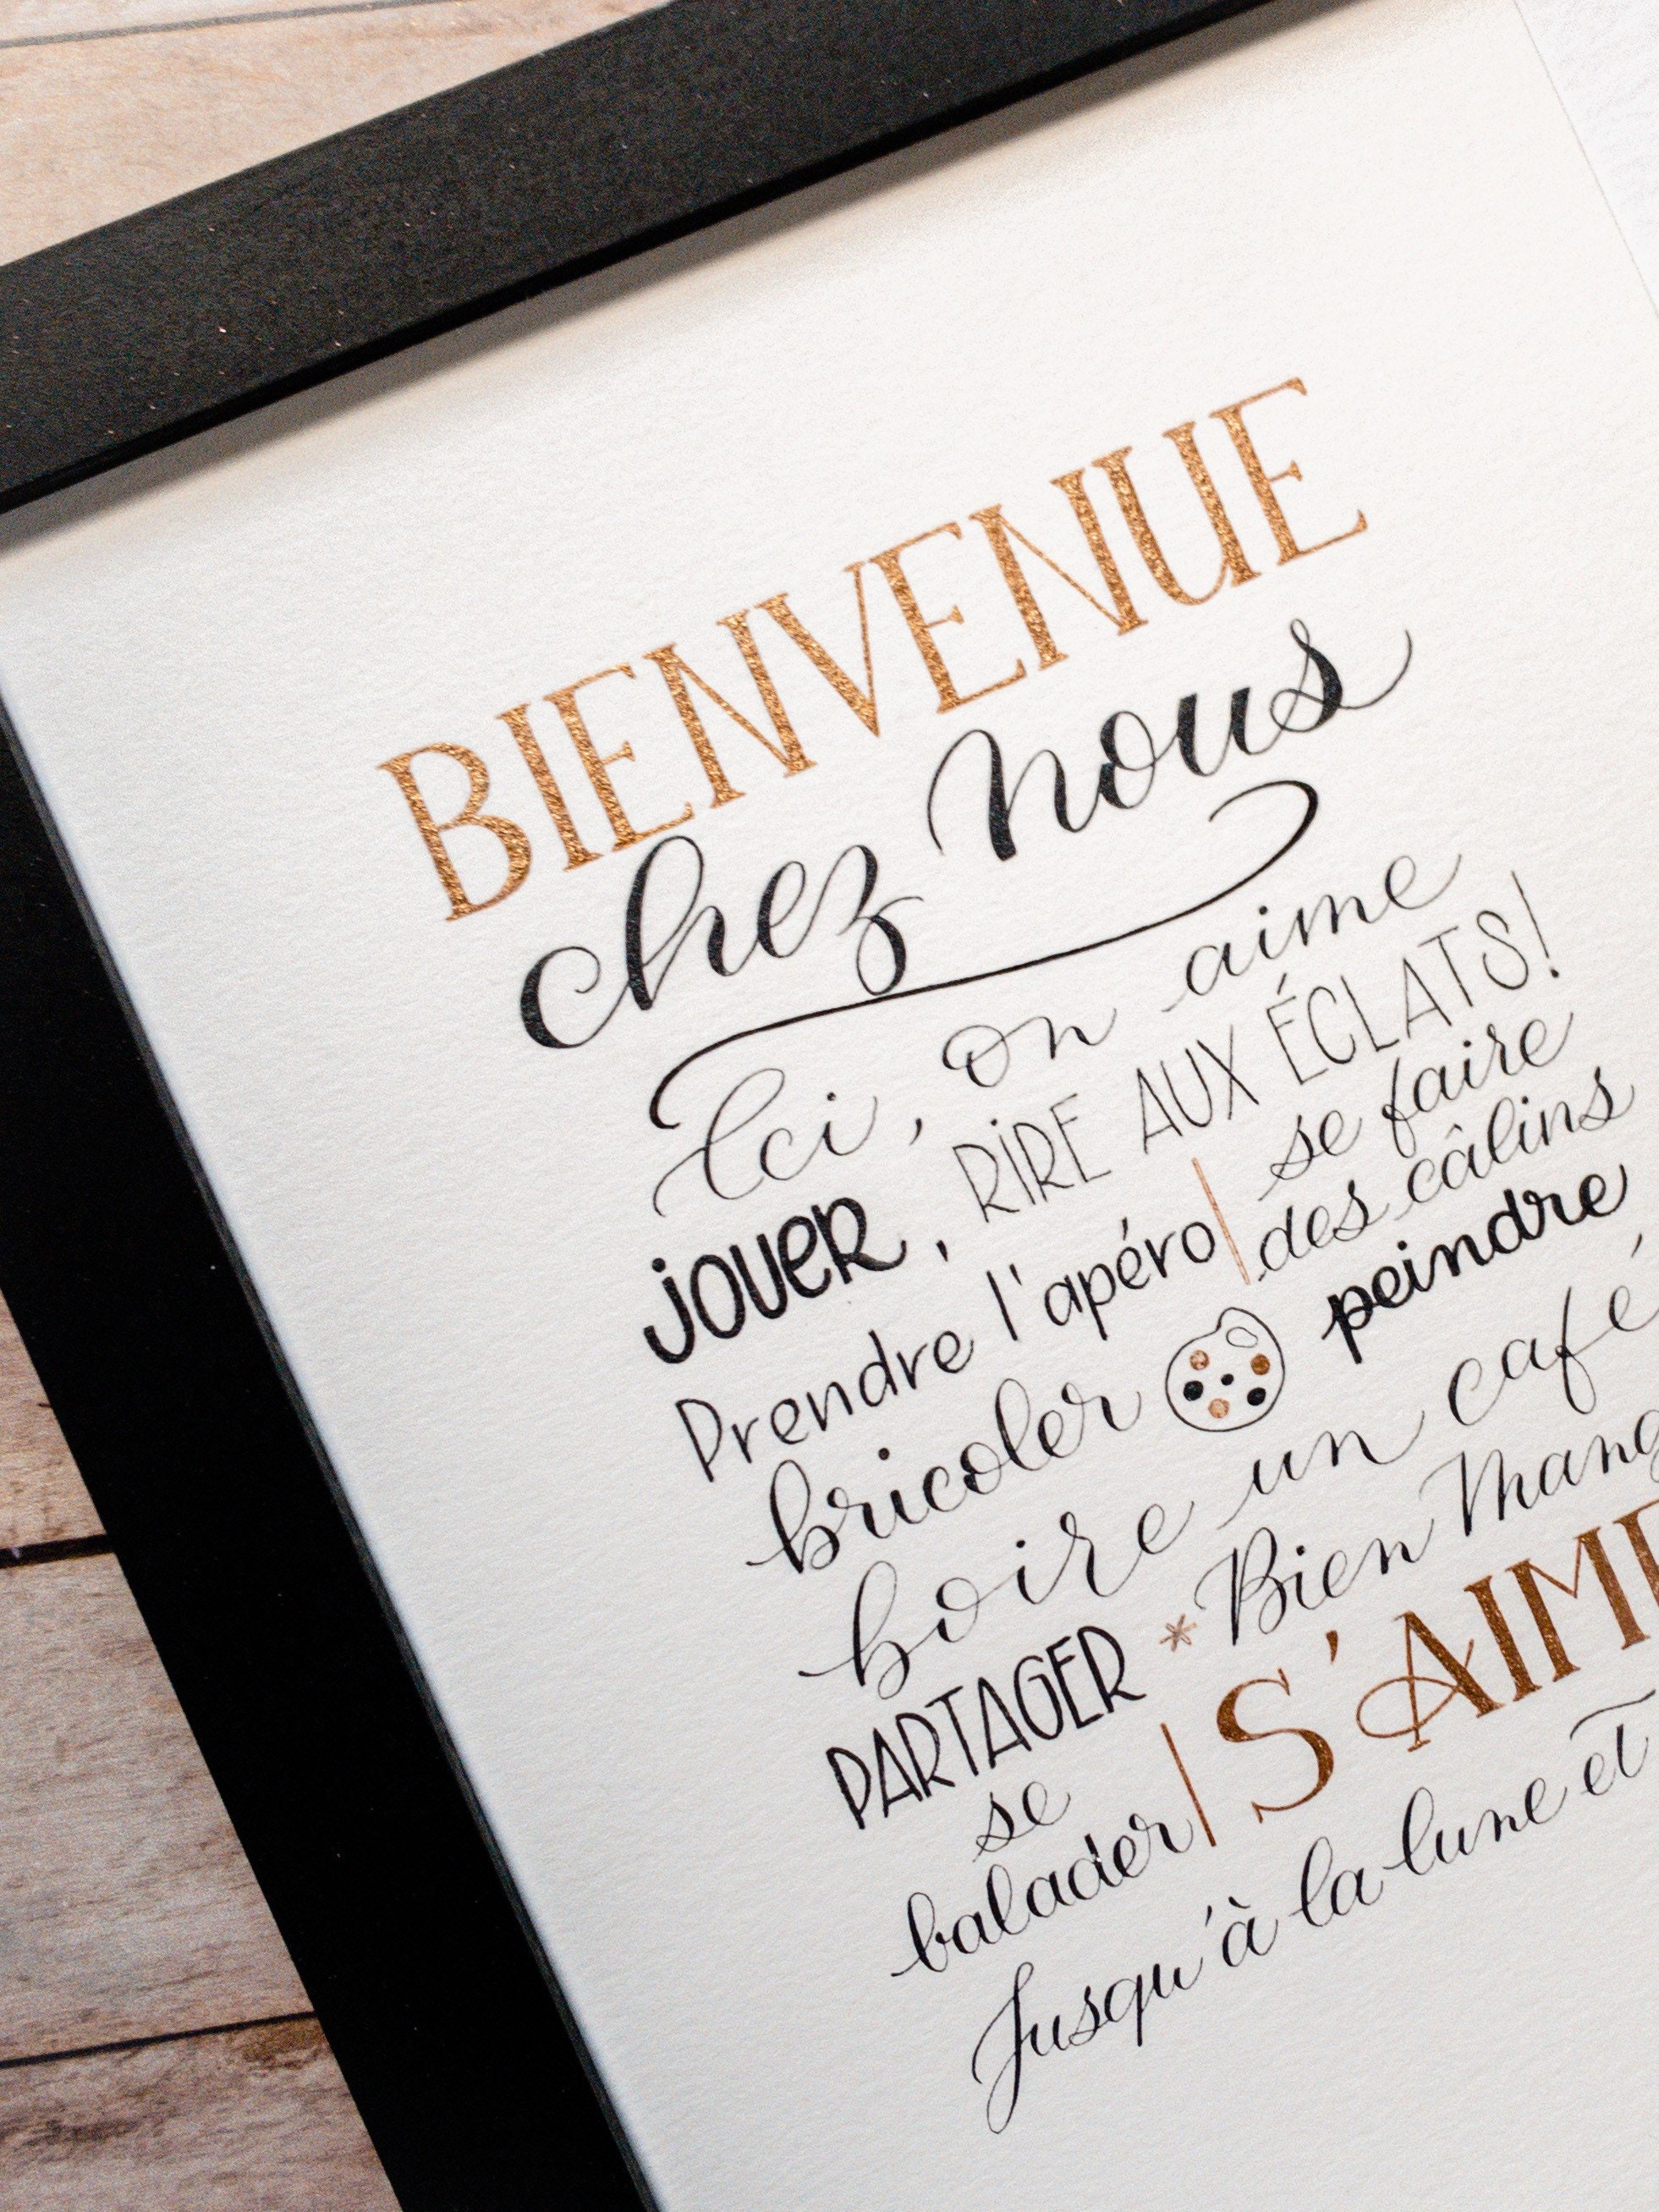 BIENVENUE
chez nous
Ici, on aime
jouer, RIRE AUX ÉCLATS!
Prendre l'apéro | se faire des câlins
bricoler peindre
boire un café,
PARTAGER * Bien Mang
se balader | S'AIME
Jusqu'à la lune et